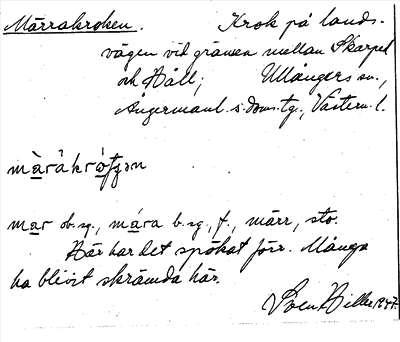 Märrakroken. Krok på lands-
vägen vid gränsen mellan Skarped
och Håll; Ullångers sn.,
Ångermanl. s. doms. tg., Västern. l.
màrakrótʃən
mar ob. sg., mára b. sg., f., märr, sto.
Här har det spökat förr. Många
ha blivit skrämda här.
Sven Hillee 1947.